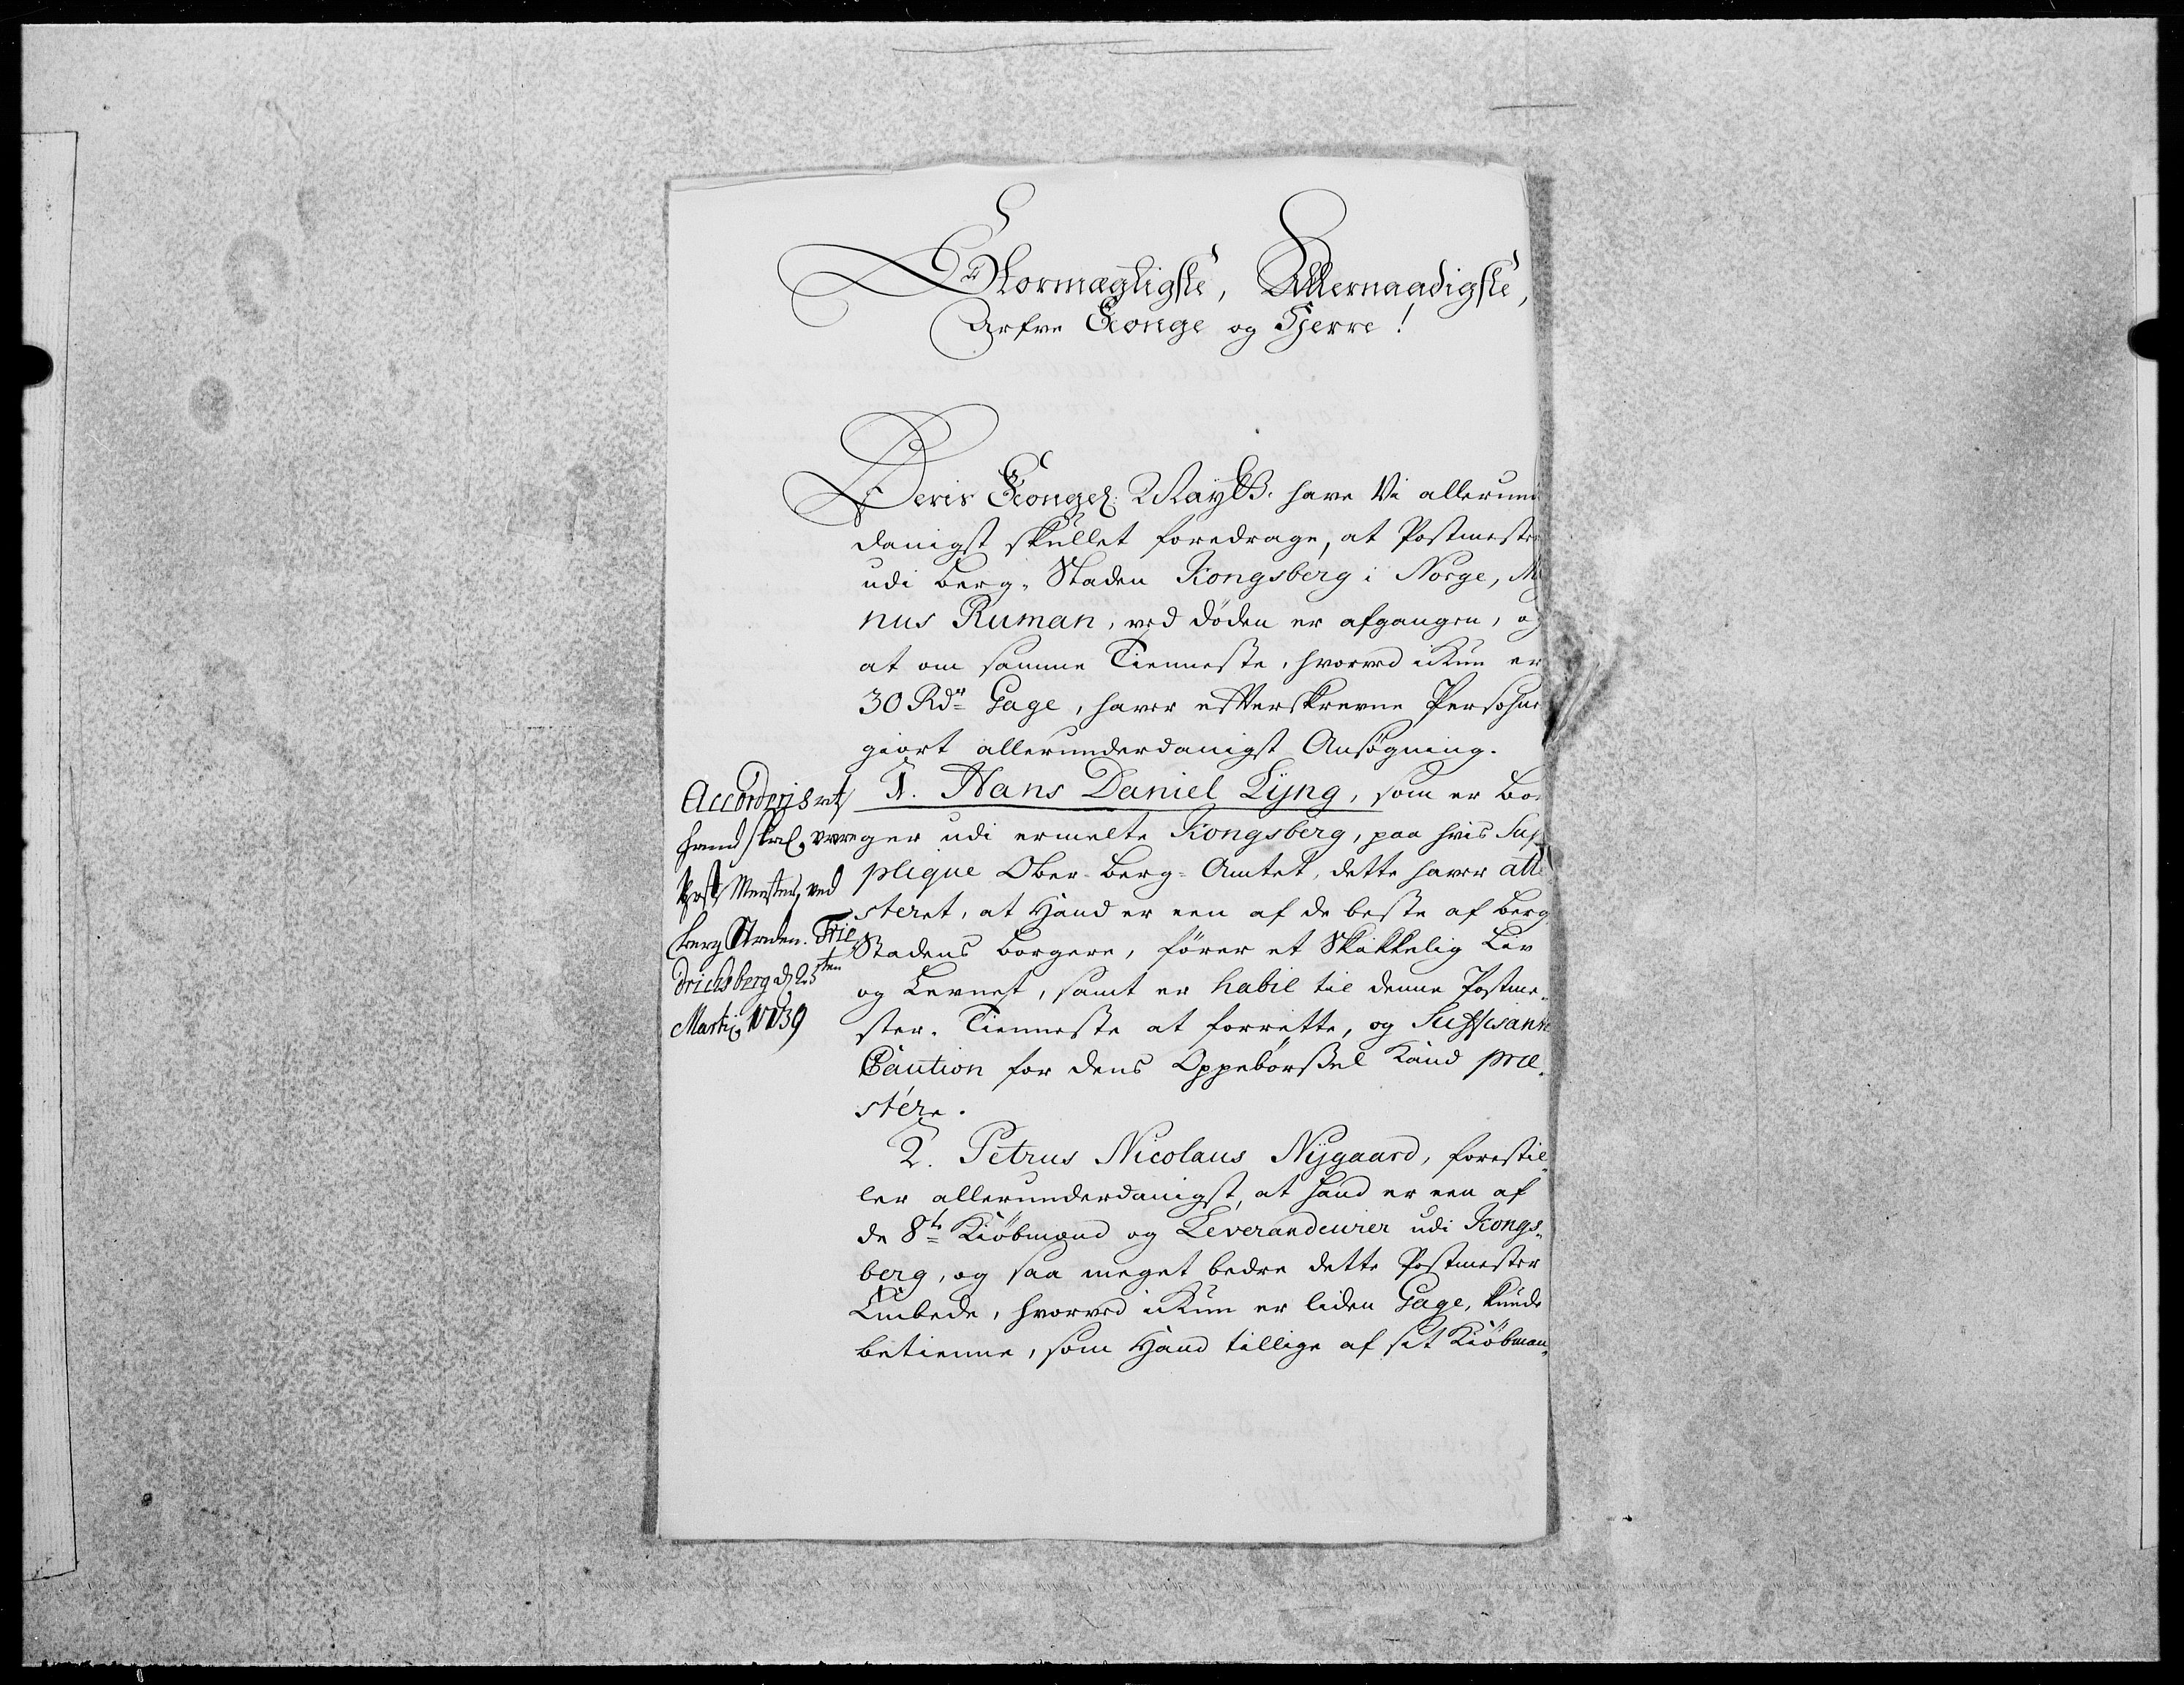 Stormægtigste, Allernaadigste,
Arfve Konge og Herre!
Deris Kongel: Mayts: have Vi allerun
danigst skullet foredrage, at Postmester
udi Berg-Staden Kongsberg i Norge, M
nus Ruman, ved döden er afgangen, og
at om samme Tienneste, hvorved ikun er
30 Rdr Gage, haver efterskrevne Persohne
giort allerunderdanigst Ansögning.
1. Hans Daniel Lÿng, som er Bor
ger udi ermelte Kongsberg, paa hvis Sup
plique Ober-Berg-Amtet, dette haver atte
steret, at Hand er een af de beste af Berg
Stadens Borgere, förer et Skikkelig Liv
og Levnet, samt er habil til denne Postme-
ster-Tienneste at forrette, og Suffisante
Caution for dens Oppebörssel kand præ-
stére.
2. Petrus Nicolaus Nÿgaard, forestil-
ler allerunderdanigst, at hand er een af
de 8te Kiöbmænd og Leverandeurer udi Kongs-
berg, og saa meget bedre dette Postmester
Embede, hvorved ikun er liden Gage, kunde
betienne, som Hand tillige af sit Kiöbman-
Accorderis at
hand skal være
Post Mester, ved
berg Staden. Frie
drichsberg d. 25ten
Martij 1739